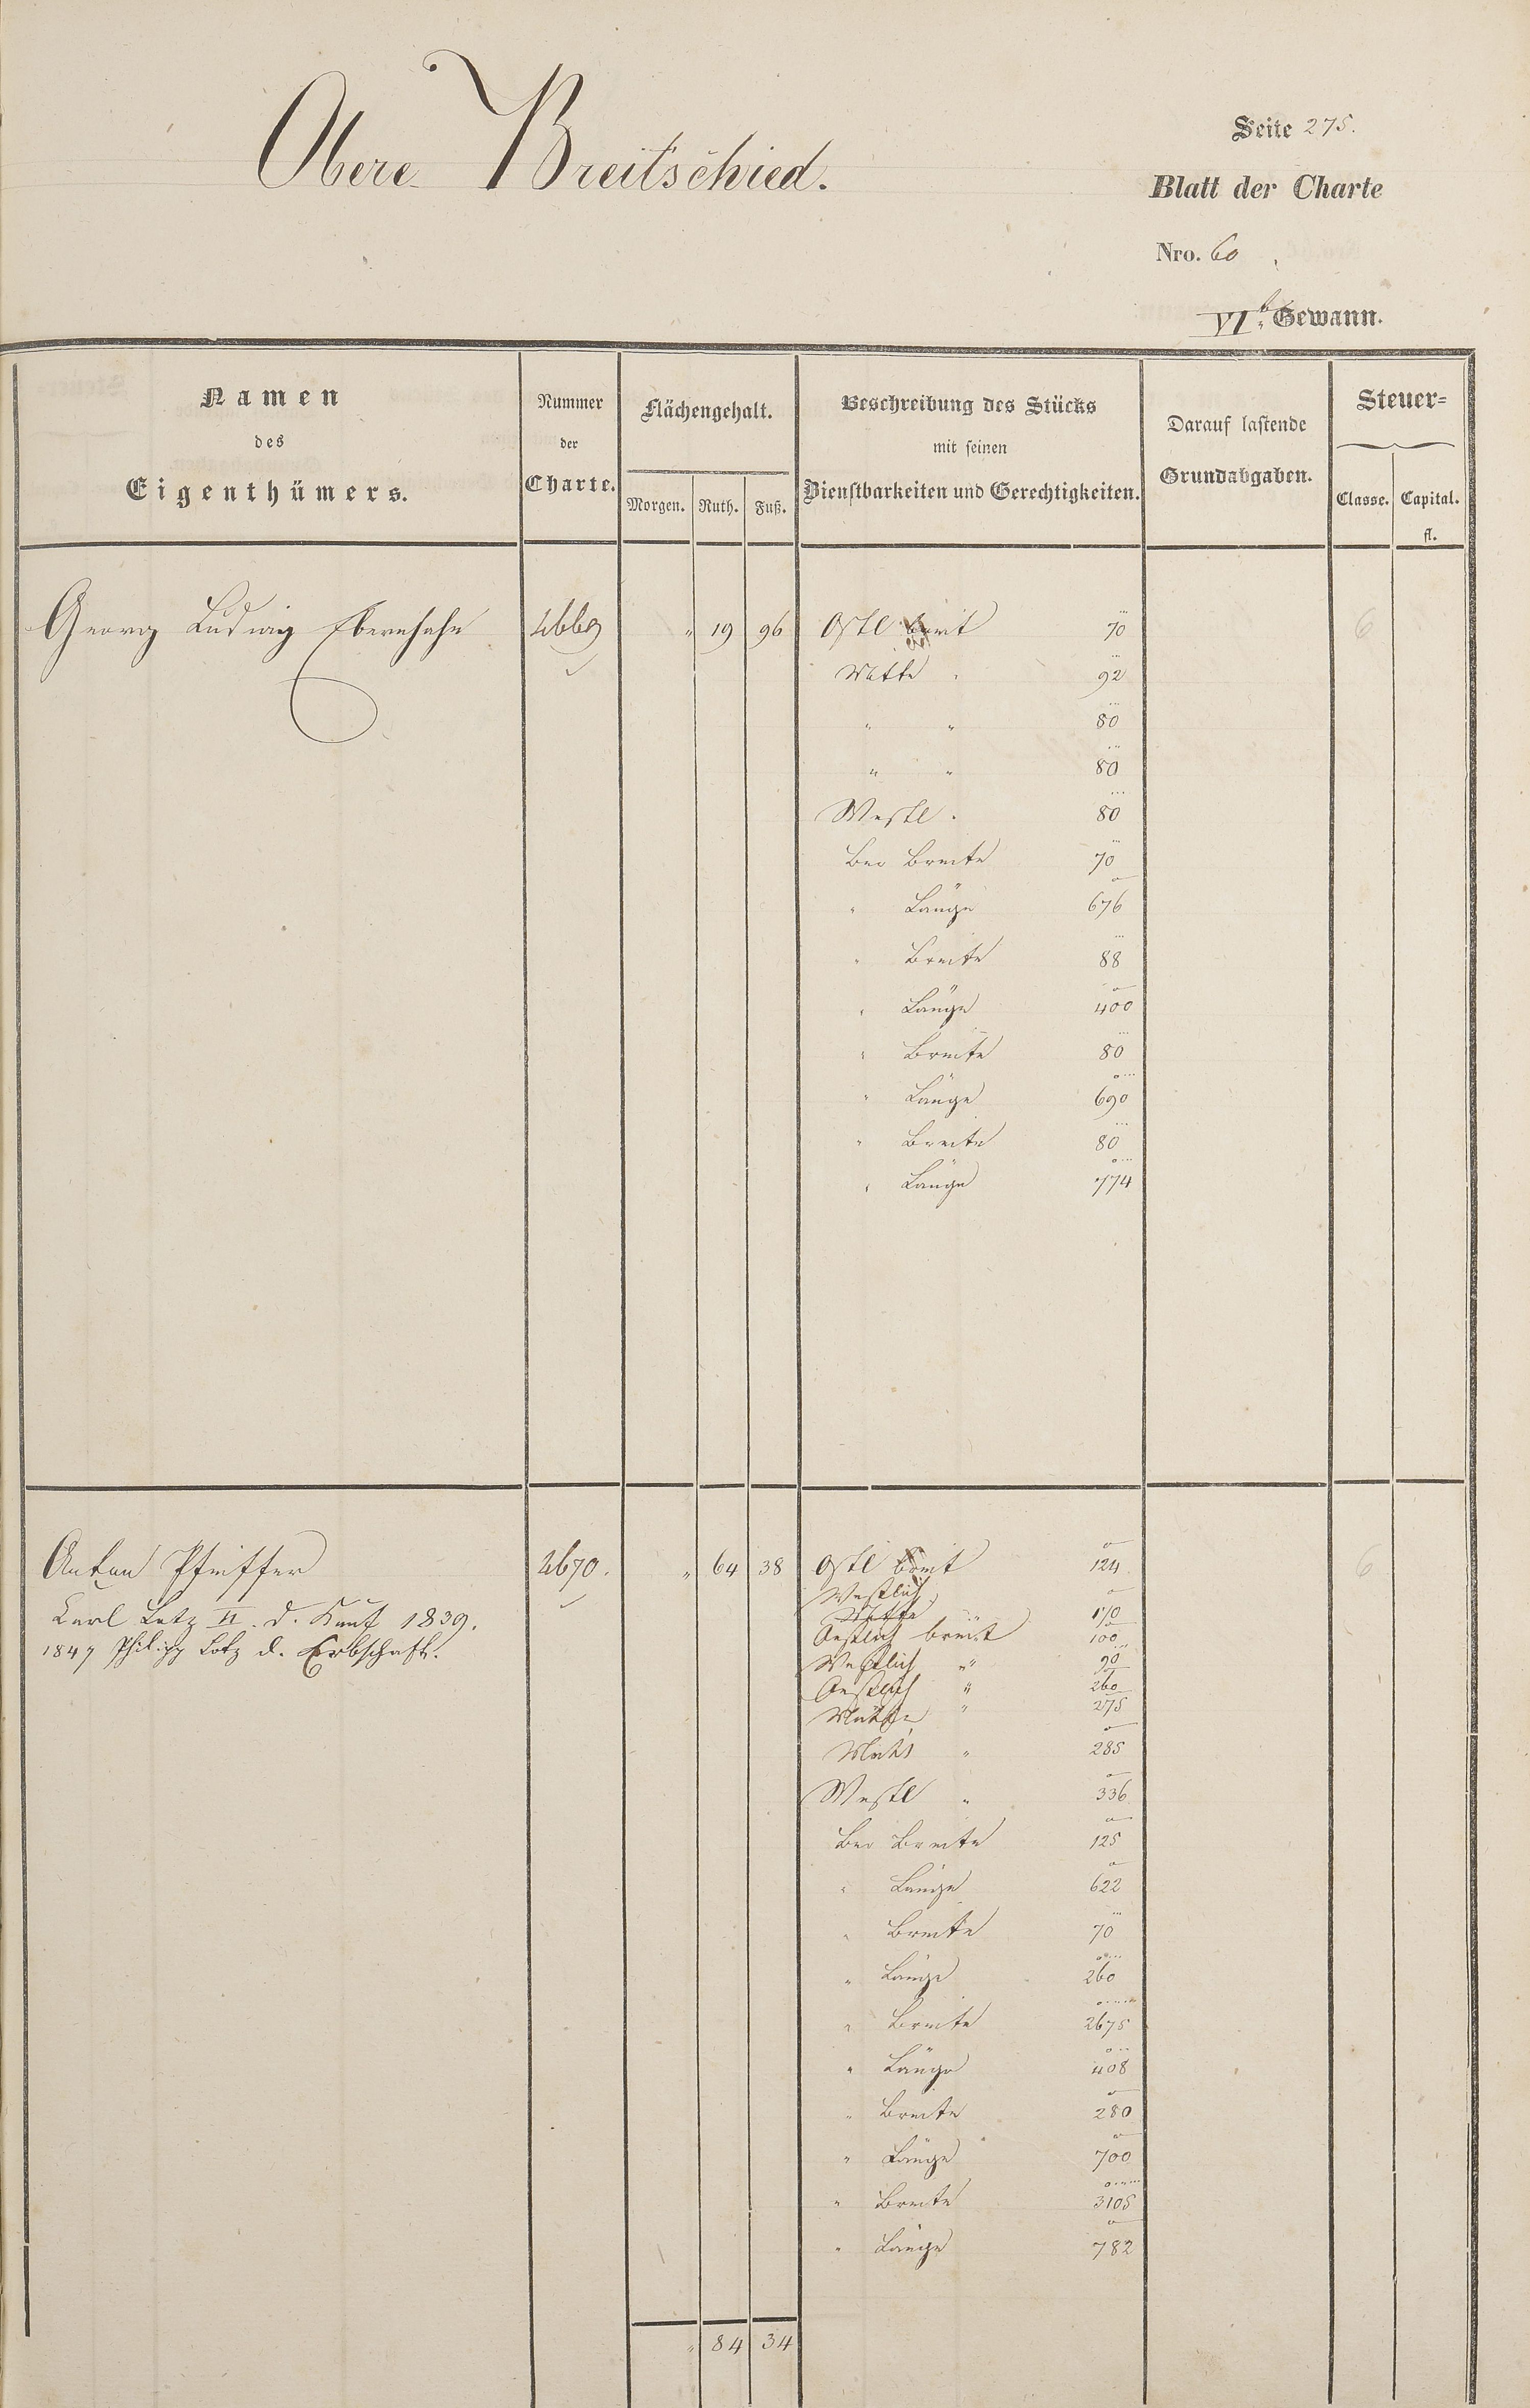 Obere Breitschied.
Seite 275.
Blatt der Charte
Nro. 60
VI.te Gewann.
Namen
des
Eigenthümers.
Nummer
der
Charte.
Flächengehalt.
Morgen. Ruth. Fuß.
Beschreibung des Stücks
mit seinen
Dienstbarkeiten und Gerechtigkeiten.
Darauf lastende
Grundabgaben.
Steuer-
Classe. Capital.
fl.
Georg Ludwig 4669 " 19 96 Östl breit 70 6
Mitte " 92
" " 80
" " 80
Westl " 80
Bei Breite 70
" Länge 676
" Breite 88
" Länge 400
" Breite 80
" Länge 690
" Breite 80
" Länge 774
Anton Pfeiffer 4670. " 64 38 Östl breit 124 6
Westlich
Karl Lotz II. d. Kauf 1839. Mitte 170
Oestlich breit 100
1847 Philipp Lotz d. Erbschaft.
Westlich " 90
Oestlich " 260
Mitte " 275
Mitte " 285
Westl " 336
Bei Breite 125
" Länge 622
" Breite 70
" Länge 260
" Breite 2675
" Länge 408
" Breite 280
" Länge 700
" Breite 3105
" Länge 782
" 84 34